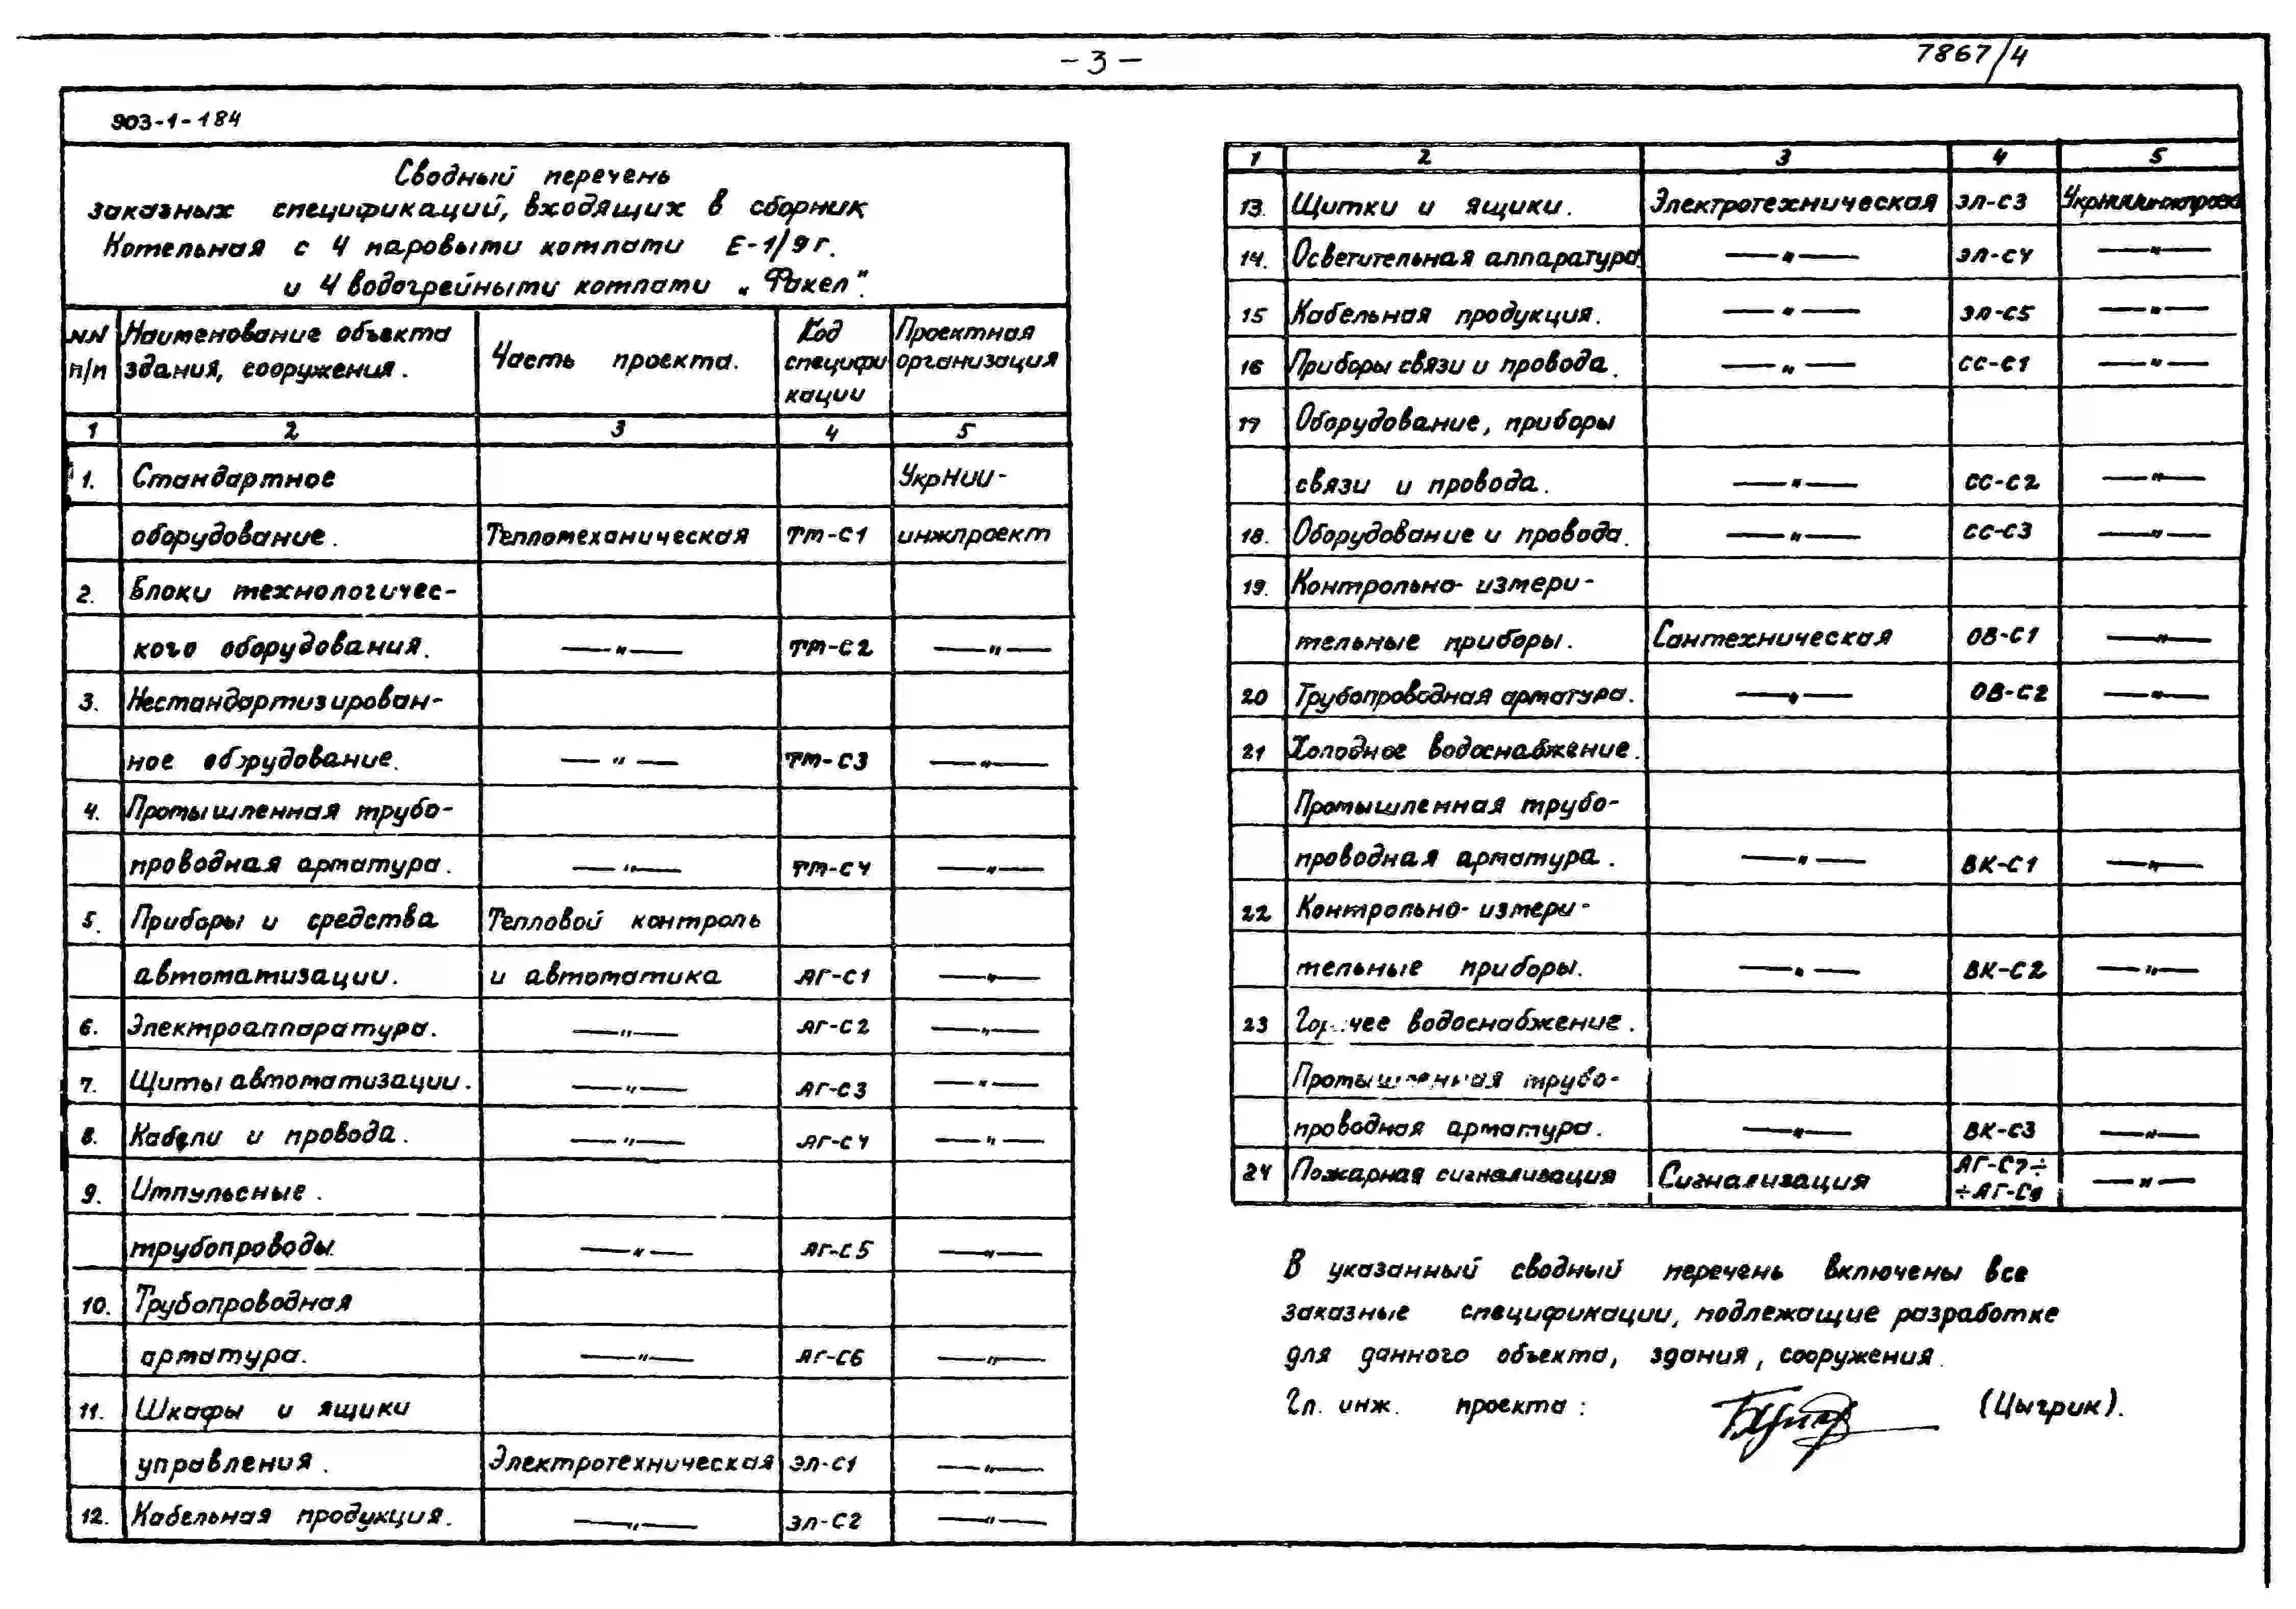 - 3 -
7867/4
903-1-184
Сводный перечень
заказных спецификаций, входящих в сборник
Котельная с 4 паровыми котлами Е-1/9г.
и 4 водогрейными котлами „Факел".
NN п/п | Наименование объекта здания, сооружения. | Часть проекта. | Код специфи кации | Проектная организация
1 2 3 4 5
1. Стандартное УкрНИИ-
оборудование. Теплотеханическая ТМ-С1 инжпроект
2. Блоки технологичес-
кого оборудования. —"— ТМ-С2 —"—
3. Нестандартизирован-
ное оборудование. —"— ТМ-С3 —"—
4. Промышленная трубо-
проводная арматура. —"— ТМ-С4 —"—
5. Приборы и средства Тепловой контроль
автоматизации. и автоматика АГ-С1 —"—
6. Электроаппаратура. —"— АГ-С2 —"—
7. Щиты автоматизации. —"— АГ-С3 —"—
8. Кабели и провода. —"— АГ-С4 —"—
9. Импульсные.
трубопроводы. —"— АГ-С5 —"—
10. Трубопроводная
арматура. —"— АГ-С6 —"—
11. Шкафы и ящики
управления. Электротехническая ЭЛ-С1 —"—
12. Кабельная продукция. —"— ЭЛ-С2 —"—
1 2 3 4 5
13. Щитки и ящики. Электротехническая ЭЛ-С3 УкрНИИинжпроект
14. Осветительная аппаратура. —"— ЭЛ-С4 —"—
15 Кабельная продукция. —"— ЭЛ-С5 —"—
16 Приборы связи и провода. —"— СС-С1 —"—
17 Оборудование, приборы
связи и провода. —"— СС-С2 —"—
18. Оборудование и провода. —"— СС-С3 —"—
19. Контрольно-измери-
тельные приборы. Сантехническая ОВ-С1 —"—
20 Трубопроводная арматура. —"— ОВ-С2 —"—
21 Холодное водоснабжение.
Промышленная трубо-
проводная арматура. —"— ВК-С1 —"—
22 Контрольно-измери-
тельные приборы. —"— ВК-С2 —"—
23 Горячее водоснабжение.
Промышленная трубо-
проводная арматура. —"— ВК-С3 —"—
24 Пожарная сигнализация Сигнализация АГ-С7÷ ÷АГ-С9 —"—
В указанный сводный перечень включены все
заказные спецификации, подлежащие разработке
для данного объекта, здания, сооружения.
Гл. инж. проекта: (Цыгрик).